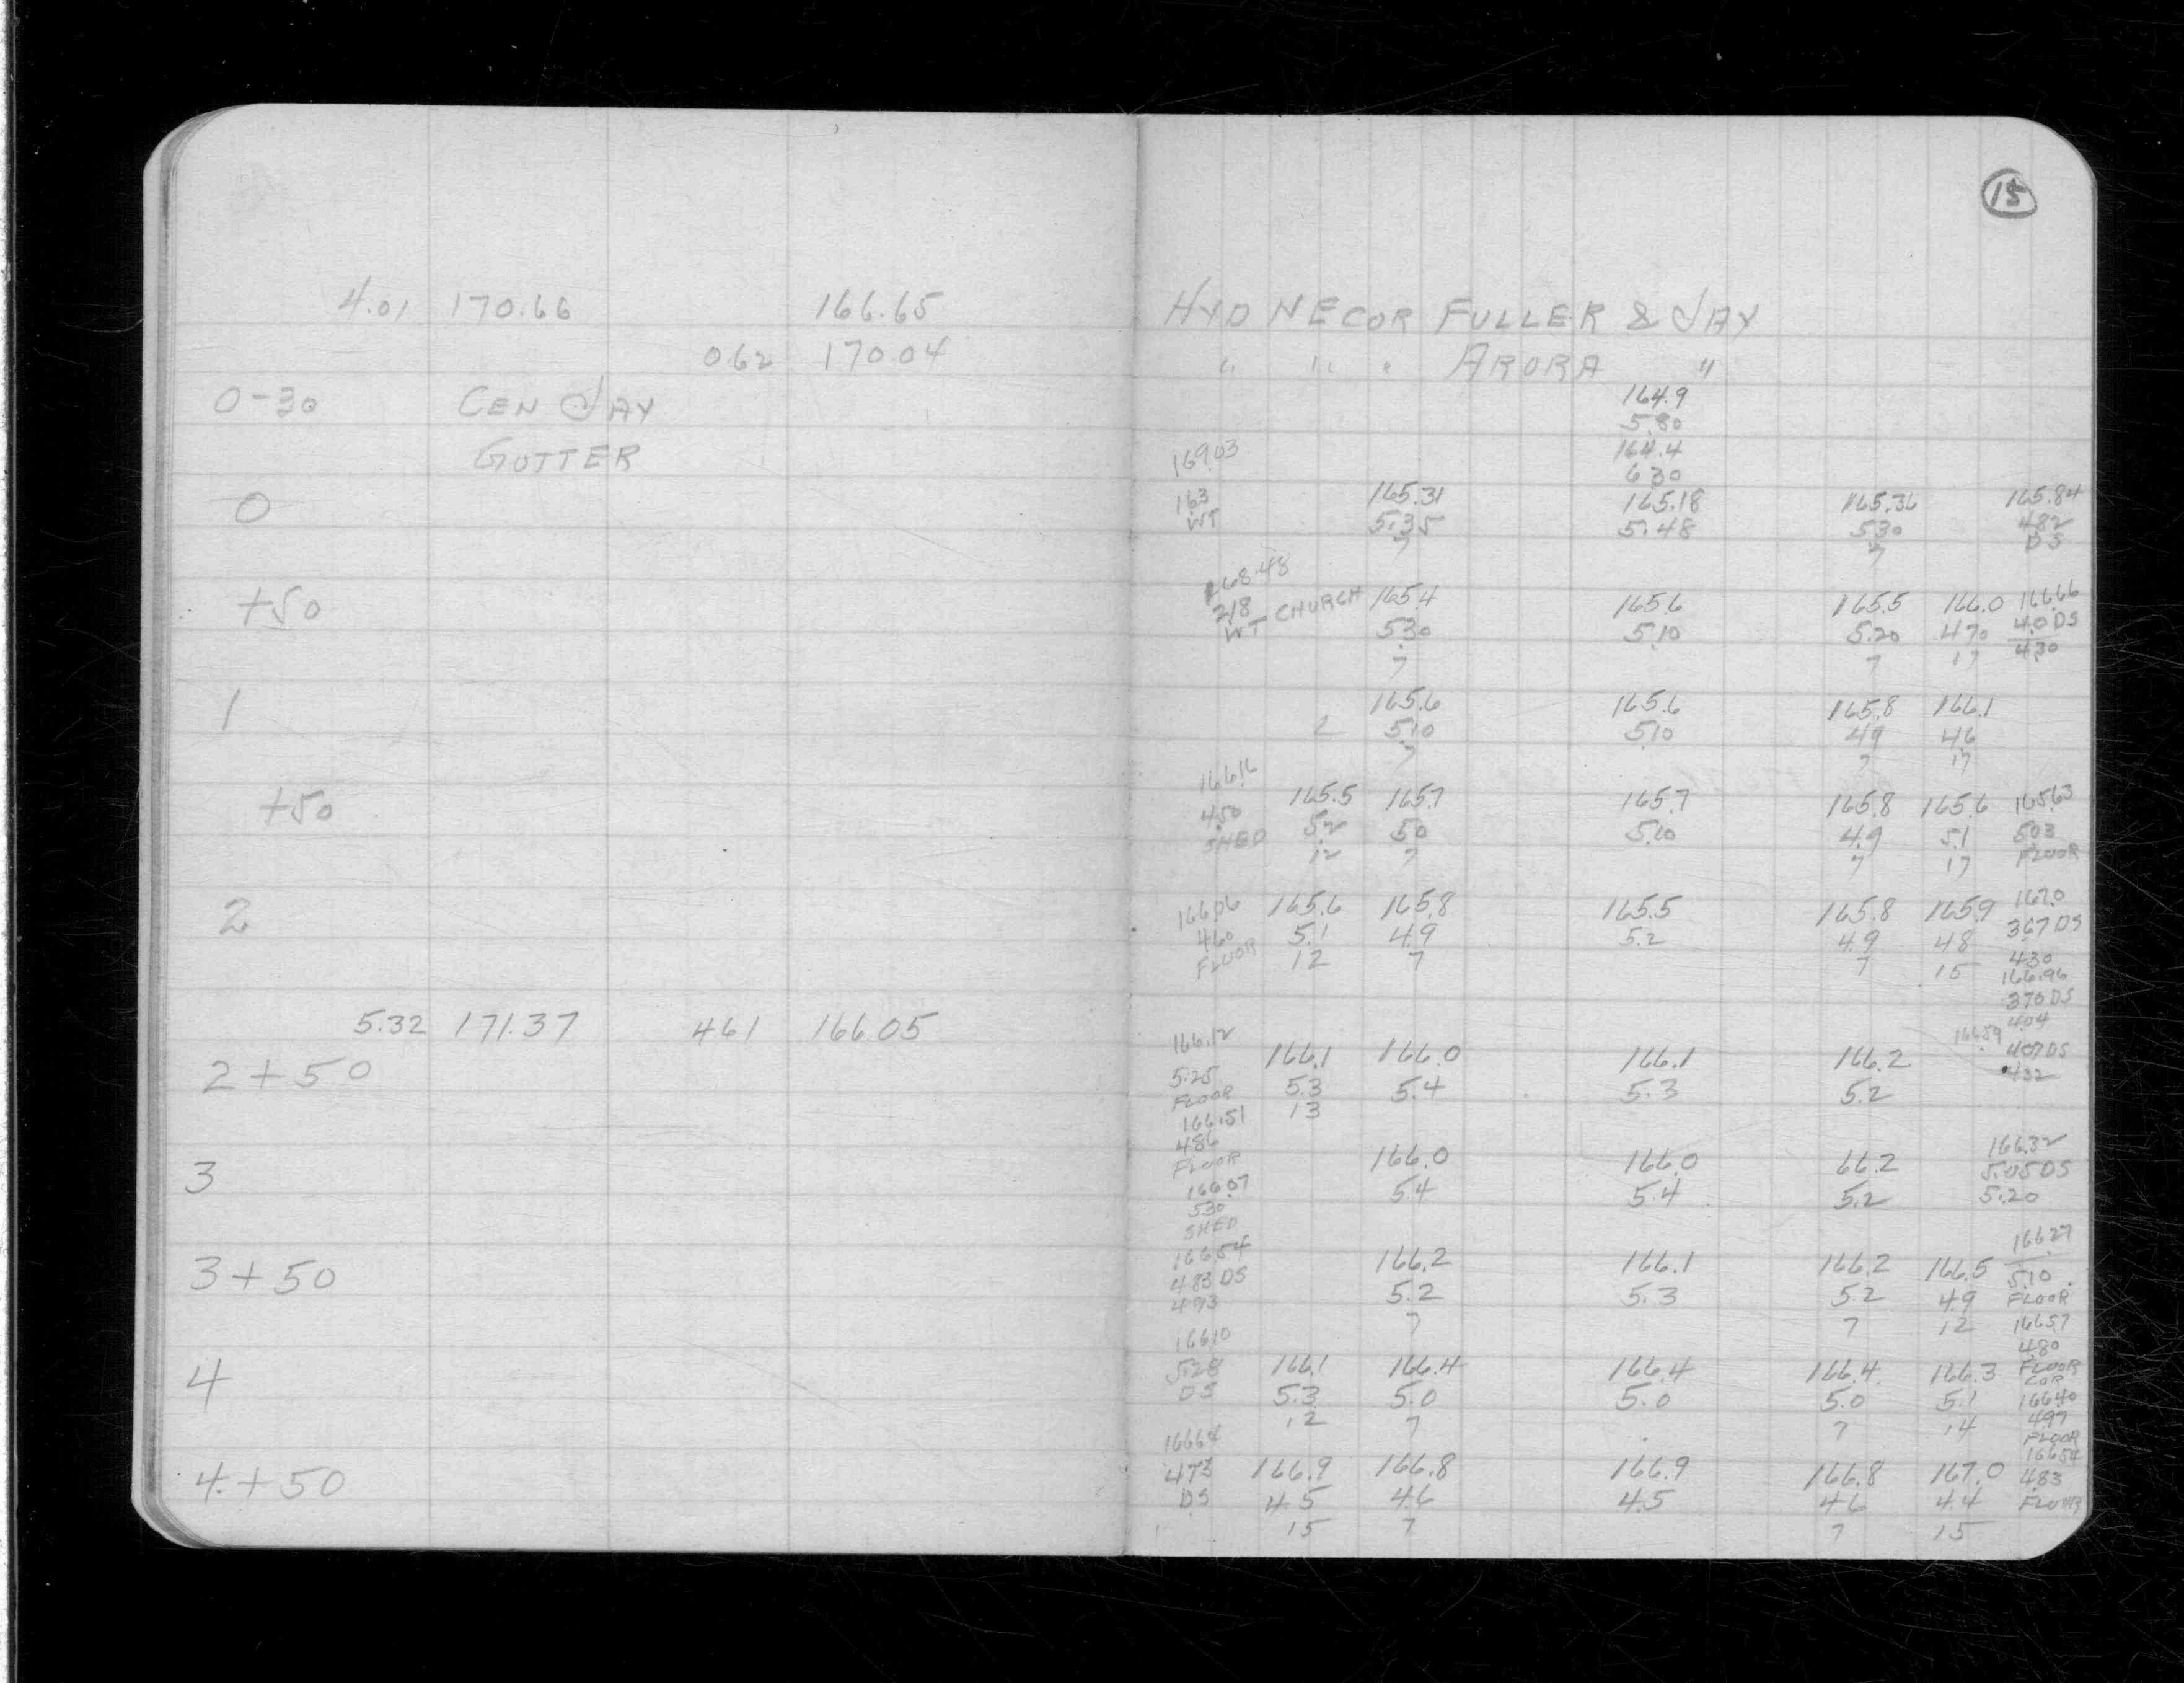 15
4.01 170.66 166.65 HYD NECOR FULLER & JAY
0.62 170.04 " " " ARORA "
0-30 CEN JAY 164.9
5.80
GUTTER 164.4
6.30
169.03
0 163 165.31 165.18 165.36 165.84
WT 5.35 5.48 5.30 4.82
7 7 DS
168.48
+50 218 CHURCH 165.4 165.6 165.5 166.0 166.66
WT 5.30 5.10 5.20 4.70 4.0 DS
7 7 17 4.30
1 165.6 165.6 165.8 166.1
2 5.10 5.10 4.9 4.6
7 7 17
166.16
+50 4.50 165.5 165.7 165.7 165.8 165.6 165.63
SHED 5.2 5.0 5.10 4.9 5.1 5.03
12 7 7 17 FLOOR
2 166.06 165.6 165.8 165.5 165.8 165.9 167.0
4.60 5.1 4.9 5.2 4.9 4.8 3.67 DS
FLOOR 12 7 7 15 4.30
166.96
3.70 DS
5.32 171.37 4.61 166.05 4.04
166.12 166.59
2+50 5.25 166.1 166.0 166.1 166.2 4.07 DS
FLOOR 5.3 5.4 5.3 5.2 4.32
13
166.51
4.86
FLOOR
3 166.0 166.0 66.2 166.32
166.07 5.4 5.4 5.2 5.05 DS
5.30 5.20
SHED
3+50 166.54 166.2 166.1 166.2 166.5 166.27
4.83 DS 5.2 5.3 5.2 4.9 5.10
4.93 7 7 12 FLOOR
166.10 166.57
4.80
4 5.28 166.1 166.4 166.4 166.4 166.3 FLOOR
DS 5.3 5.0 5.0 5.0 5.1 COR
12 7 7 14 166.40
4.97
FLOOR
166.64 166.54
4+50 4.73 166.9 166.8 166.9 166.8 167.0 4.83
DS 4.5 4.6 4.5 4.6 4.4 FLOOR
15 7 7 15